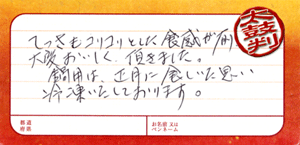 太鼓判
てっさもコリコリとした食感が何
大変おいしく、頂きました。
鍋用は、正月に食したい思い
冷凍いたしております。
都道
府県
お名前又は
ペンネーム